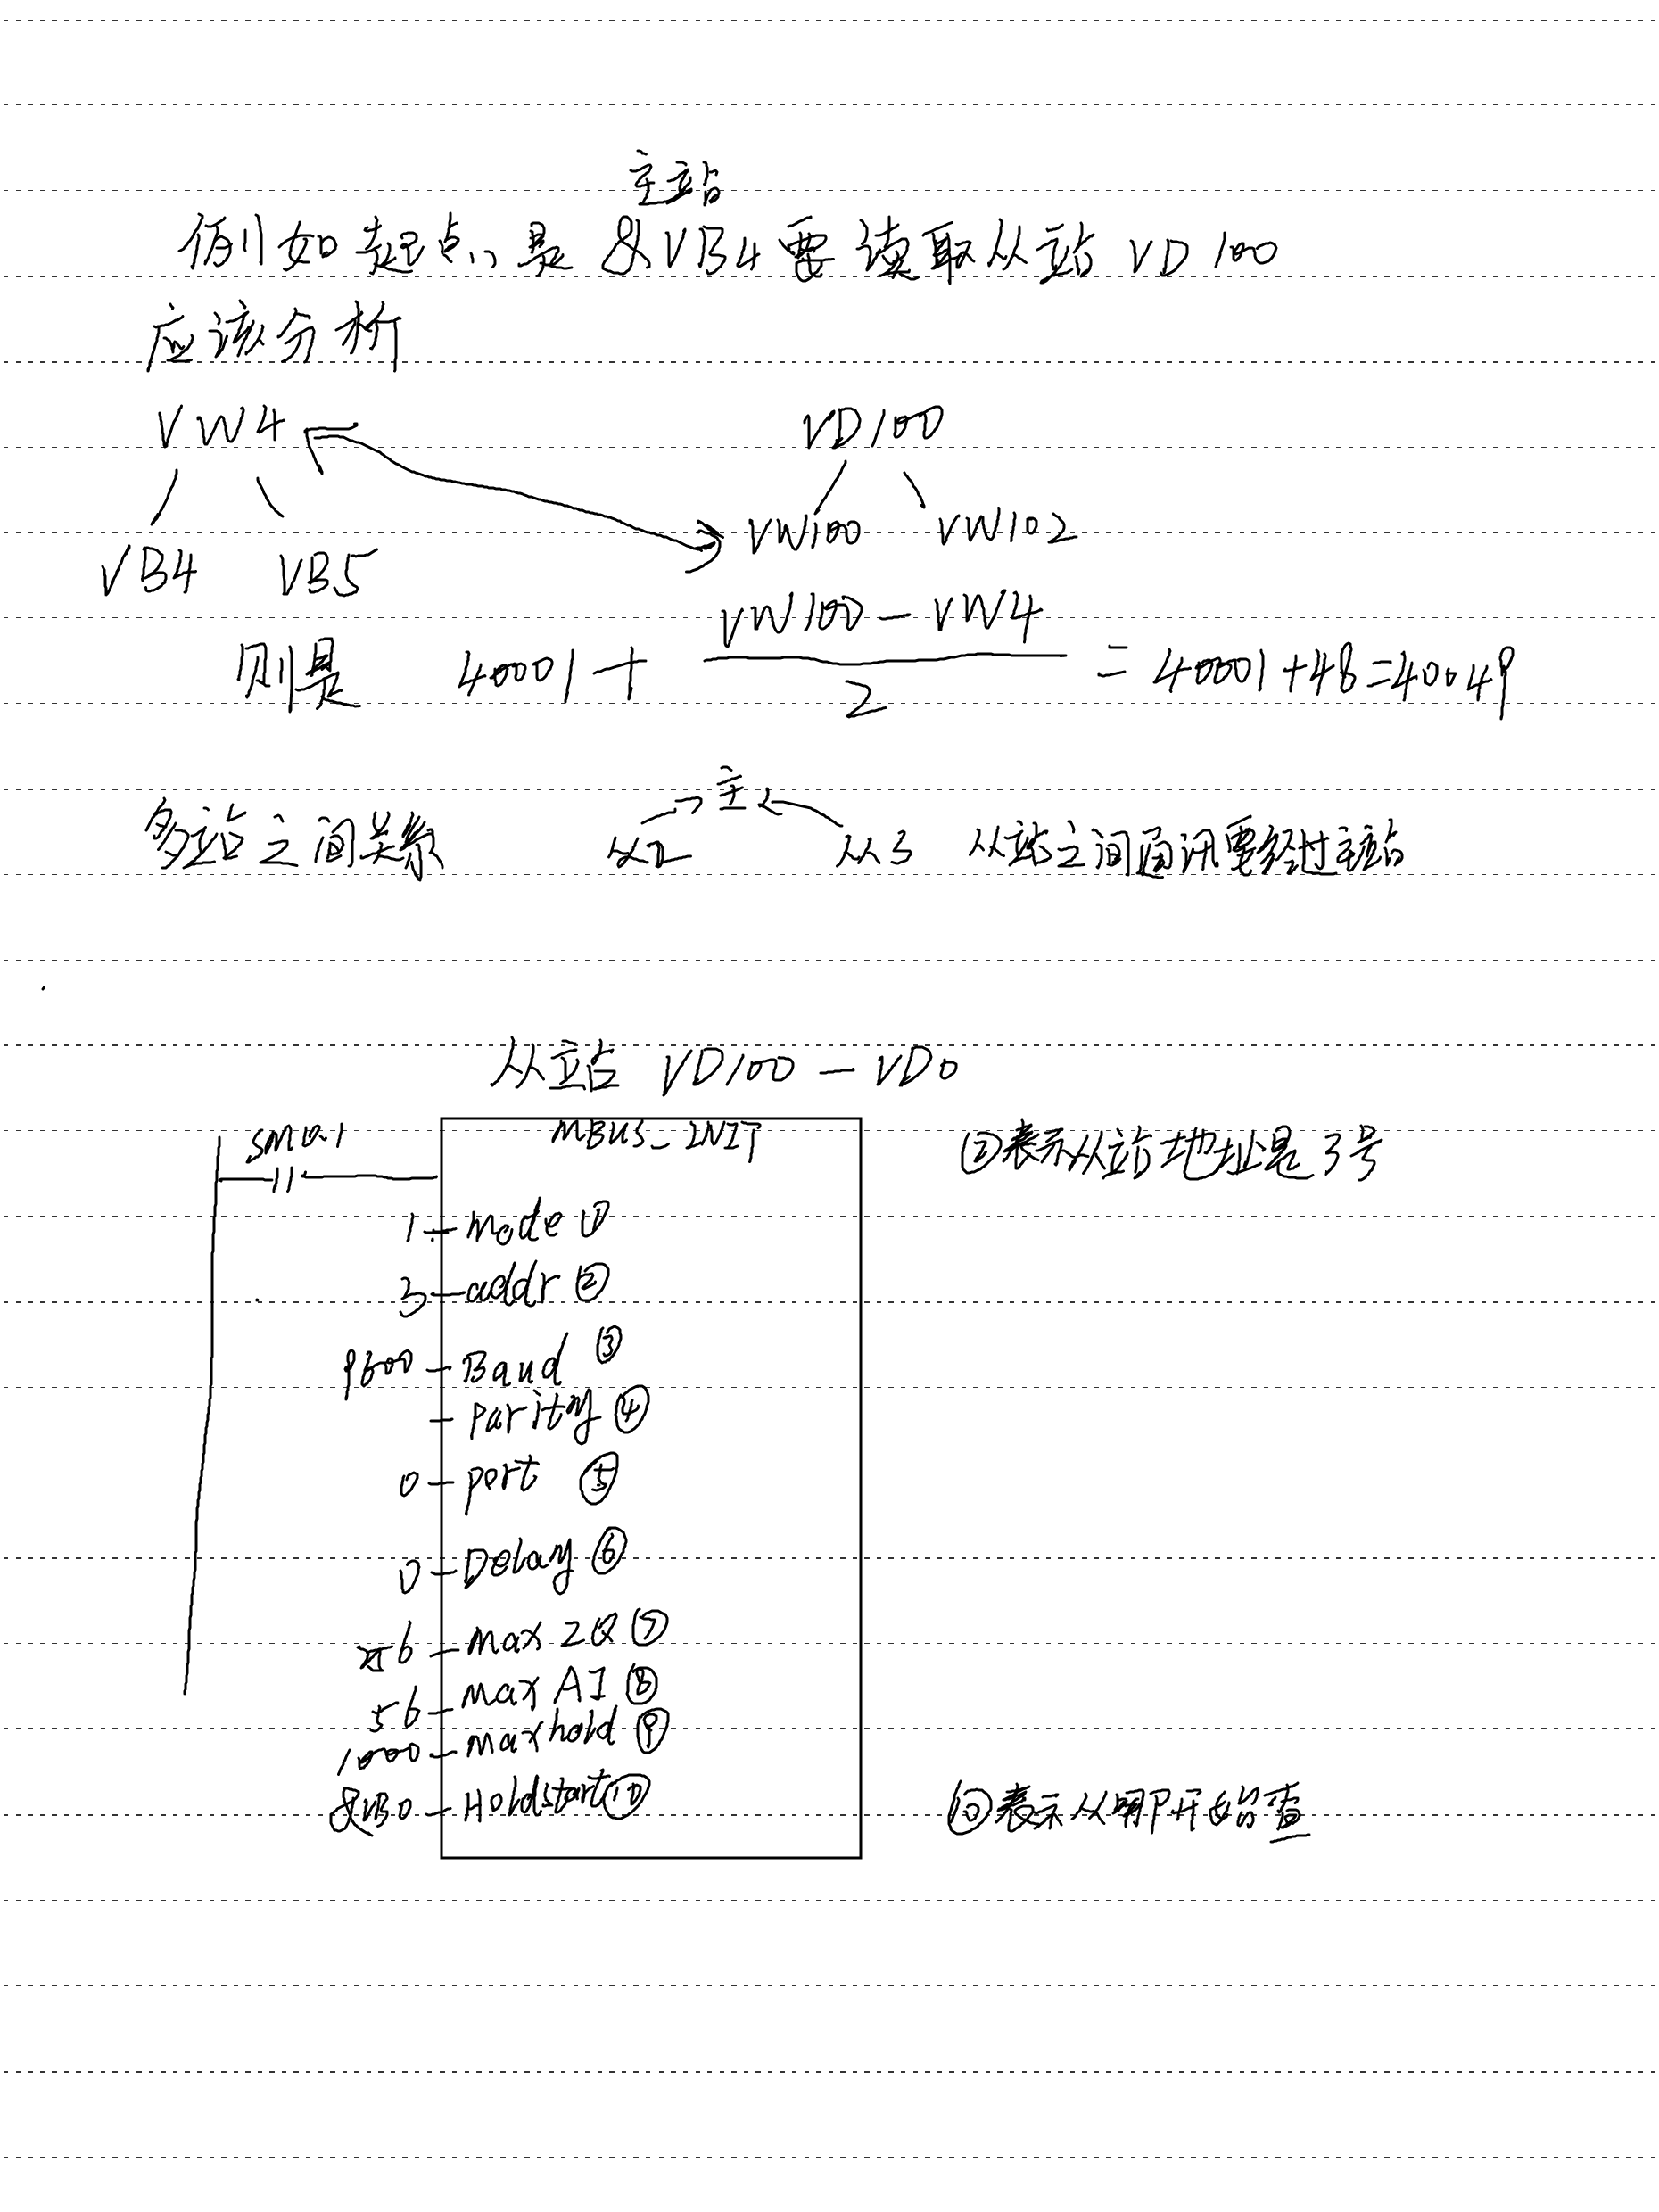 主站
例如起点是 &VB4要读取从站 VD100
应该分析
VW4 VD100
VW100 VW102
VB4 VB5
VW100-VW4
则是 40001+ = 40001+48=40049
2
主
多站之间关系 从2 从3 从站之间通讯要经过主站
从站 VD100-VD0
SM0.1 MBUS_INIT ②表示从站地址是3号
1 mode ①
3 addr ②
9600 Baud ③
parity ④
0 port ⑤
0 Delay ⑥
6 max IQ ⑦
56 max AI ⑧
1000 maxhold ⑨
&VB0 Holdstart ⑩ ⑩表示从哪开始查